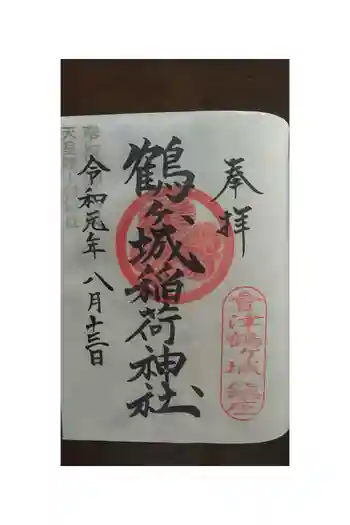 奉拝
會津鶴ヶ城鎮座
鶴ヶ城稲荷神社
令和元年 八月十三日